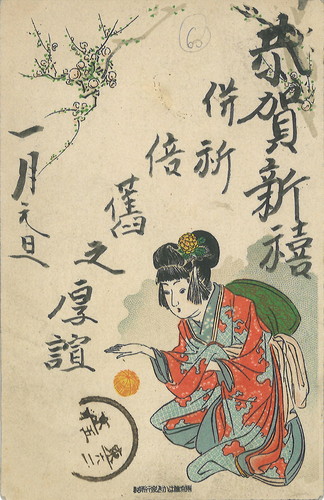 恭賀新禧
併祈
倍
舊
之
厚誼
一月元旦
60